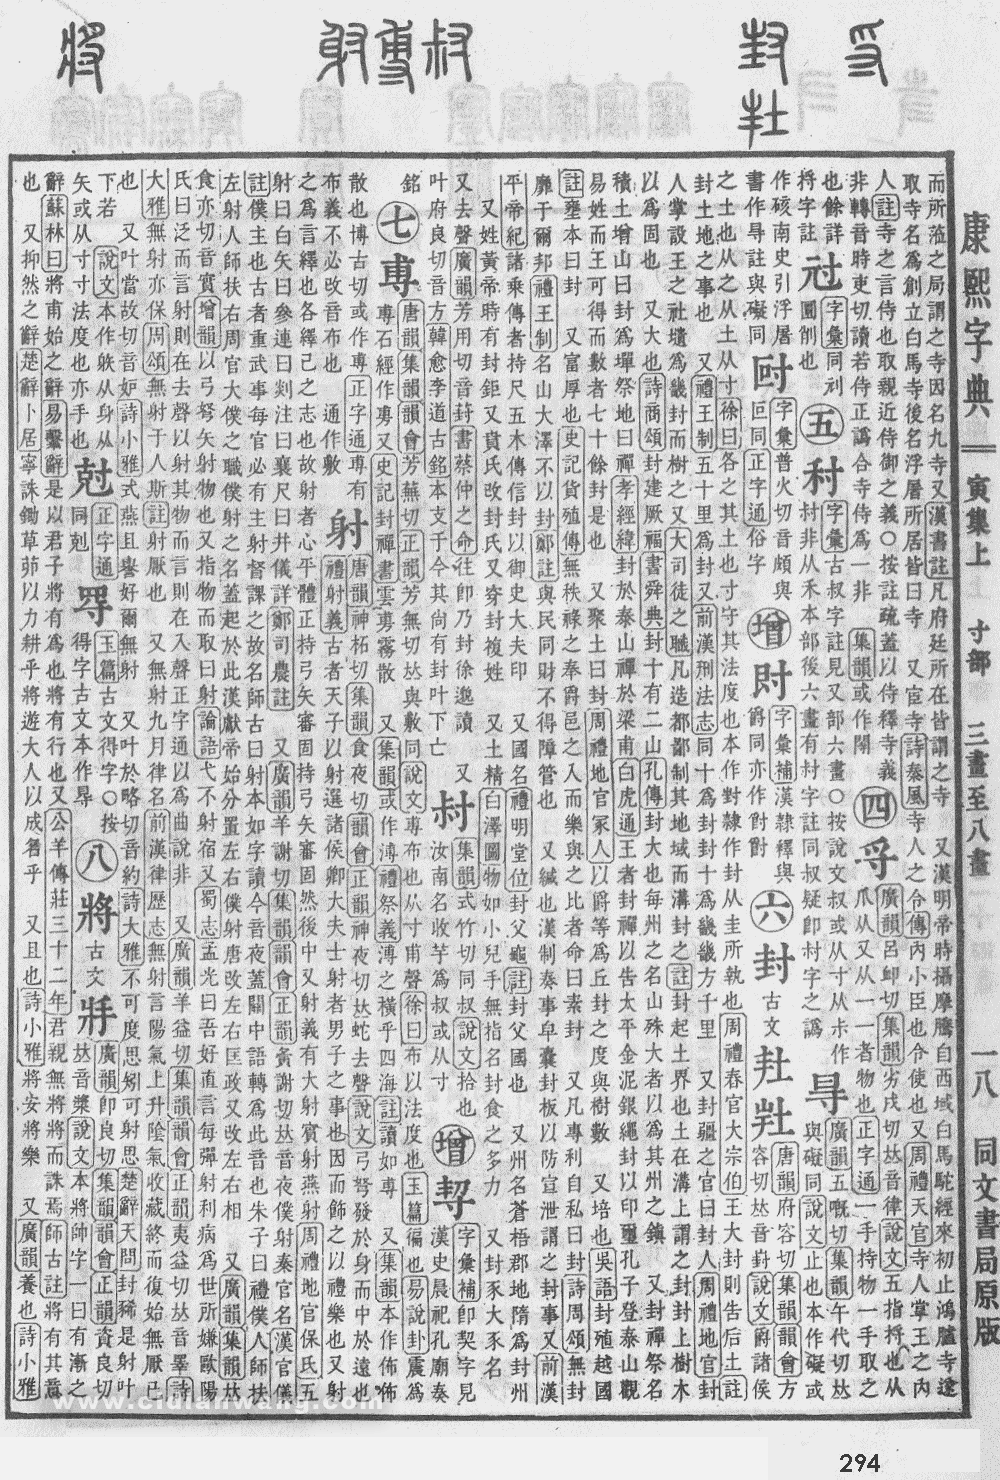 康熙字典 寅集上 寸部 三畫至八畫 一八 同文書局原版
而所涖之局謂之寺因名九寺又漢書註凡府廷所在皆謂之寺 又漢明帝時攝摩騰自西域白馬駝經來初止鴻臚寺遂
取寺名為創立白馬寺後名浮屠所居皆曰寺 又宦寺詩秦風寺人之令傳內小臣也令使也又周禮天官寺人掌王之內
人註寺之言侍也取親近侍御之義○按註疏蓋以侍釋寺義
非轉音時吏切讀若侍正譌合寺侍為一非 集韻或作閛
四寽廣韻呂䘏切集韻劣戌切𠀤音律說文五指捋也从
爪从又从一一者物也正字通一手持物一手取之
也餘詳
捋字註
字彙同刌
圓削也
五村
字彙古叔字註見又部六畫○按說文叔或从寸从朩作
村非从禾本部後六畫有村字註同叔疑卽村字之譌
㝵廣韻五嘅切集韻午代切𠀤
與礙同說文止也本作礙或
作硋南史引浮屠
書作㝵註與礙同
字彙普火切音頗與
叵同正字通俗字
增
字彙補漢隸釋與
爵同亦作
六封古文𡉘𡊋唐韻府容切集韻韻會方
容切𠀤音葑說文爵諸侯
之土也从之从土从寸徐曰各之其土也寸守其法度也本作對隸作封从圭所執也周禮春官大宗伯王大封則告后土註
封土地之事也 又禮王制五十里為封又前漢刑法志同十為封封十為畿畿方千里 又封疆之官曰封人周禮地官封
人掌設王之社壝為畿封而樹之又大司徒之職凡造都鄙制其地域而溝封之註封起土界也土在溝上謂之封封上樹木
以為固也 又大也詩商頌封建厥福書舜典封十有二山孔傳封大也每州之名山殊大者以為其州之鎮 又封禪祭名
積土增山曰封為墠祭地曰禪孝經緯封於泰山禪於梁甫白虎通王者封禪以告太平金泥銀繩封以印璽孔子登泰山觀
易姓而王可得而數者七十餘封是也 又聚土曰封周禮地官冢人以爵等為丘封之度與樹數 又培也吳語封殖越國
註壅本曰封 又富厚也史記貨殖傳無秩祿之奉爵邑之入而樂與之比者命曰素封 又凡專利自私曰封詩周頌無封
靡于爾邦禮王制名山大澤不以封鄭註與民同財不得障管也 又緘也漢制奏事皁囊封板以防宣泄謂之封事又前漢
平帝紀諸乘傳者持尺五木傳信封以御史大夫印 又國名禮明堂位封父龜註封父國也 又州名蒼梧郡地隋為封州
又姓黃帝時有封鉅又賁氏改封氏又穿封複姓 又土精白澤圖物如小兒手無指名封食之多力 又封豕大豕名
又去聲廣韻芳用切音葑書蔡仲之命往卽乃封徐邈讀 又
叶府良切音方韓愈李道古銘本支于今其尙有封叶下亡
銘
集韻式竹切同叔說文拾也
汝南名收芋為叔或从寸
增
字彙補卽契字見
漢史晨祀孔廟奏
七尃
唐韻集韻韻會芳蕪切正韻芳無切𠀤與敷同說文尃布也从寸甫聲徐曰布以法度也玉篇徧也易說卦震為
尃石經作旉又史記封禪書雲尃霧散 又集韻或作溥禮祭義溥之而橫乎四海註讀如尃 又集韻本作佈佈
散也博古切或作尃正字通尃有
布義不必改音布也 通作敷
射
唐韻神柘切集韻食夜切韻會正韻神夜切𠀤蛇去聲說文弓弩發於身而中於遠也
禮射義古者天子以射選諸侯卿大夫士射者男子之事也因而飾之以禮樂也又射
之為言繹也各繹己之志也故射者心平體正持弓矢審固持弓矢審固然後中又射義有大射賓射燕射周禮地官保氏五
射曰白矢曰參連曰剡注曰襄尺曰井儀詳鄭司農註 又廣韻羊謝切集韻韻會正韻夤謝切𠀤音夜僕射秦官名漢官儀
註僕主也古者重武事每官必有主射督課之故名師古曰射本如字讀今音夜蓋關中語轉為此音也朱子曰禮僕人師扶
左射人師扶右周官大僕之職僕射之名蓋起於此漢獻帝始分置左右僕射唐改左右匡政又改左右相 又廣韻集韻𠀤
食亦切音實增韻以弓弩矢射物也又指物而取曰射論語弋不射宿又蜀志孟光曰吾好直言每彈射利病為世所嫌歐陽
氏曰泛而言射則在去聲以射其物而言則在入聲正字通以為曲說非 又廣韻羊益切集韻韻會正韻夷益切𠀤音睪詩
大雅無射亦保周頌無射于人斯註射厭也 又無射九月律名前漢律歷志無射言陽氣上升陰氣收藏終而復始無厭已
也 又叶當故切音妒詩小雅式燕且譽好爾無射 又叶於略切音約詩大雅不可度思矧可射思楚辭天問封豨是射叶
下若 說文本作䠶从身从
矢或从寸寸法度也亦手也
尅
正字通
同剋
玉篇古文得字○按
得字古文本作㝵
八將
古文𢪇
廣韻卽良切集韻韻會正韻資良切
𠀤音漿說文本將帥字一曰有漸之
辭蘇林曰將甫始之辭易繫辭是以君子將有為也將有行也又公羊傳莊三十二年君親無將將而誅焉師古註將有其意
也 又抑然之辭楚辭卜居寧誅鋤草茆以力耕乎將遊大人以成名乎 又且也詩小雅將安將樂 又廣韻養也詩小雅
www.cidianwang.com
294